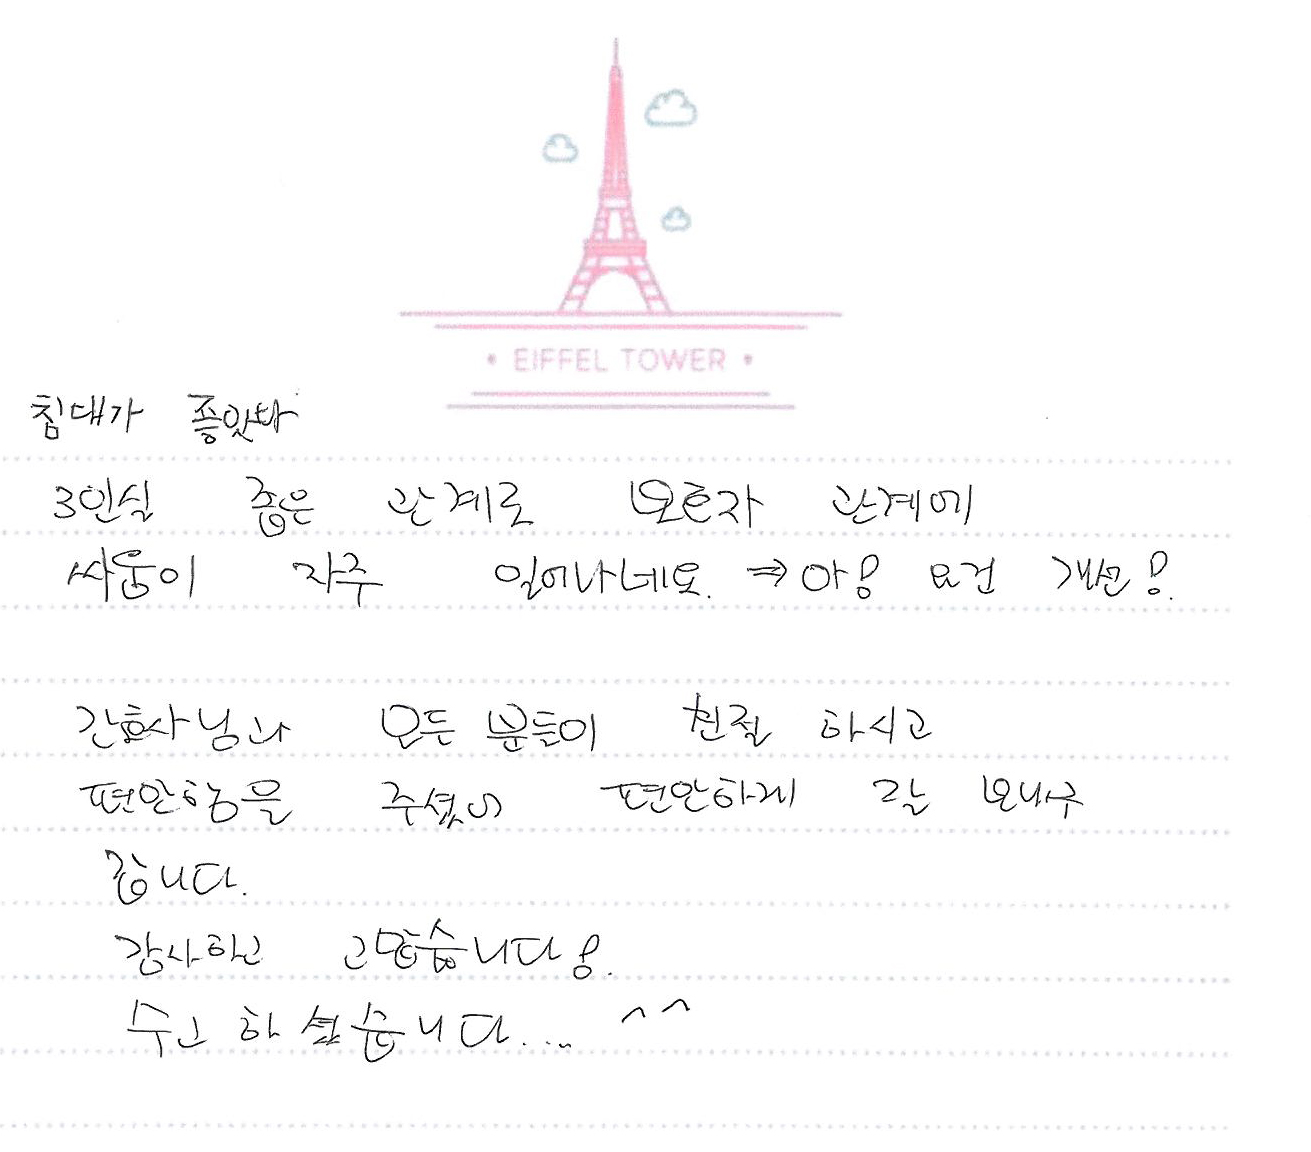 • EIFFEL TOWER •
침대가 좋았다
3인실 좁은 관계로 보호자 관계에
싸움이 자주 일어나네요. ⇒ 요건 개선!
간호사님과 모든 분들이 친절 하시고
편안함을 주셨어 편안하게 잘 보내구
갑니다.
감사하고 고맙습니다!.
수고 하셨습니다.... ^^